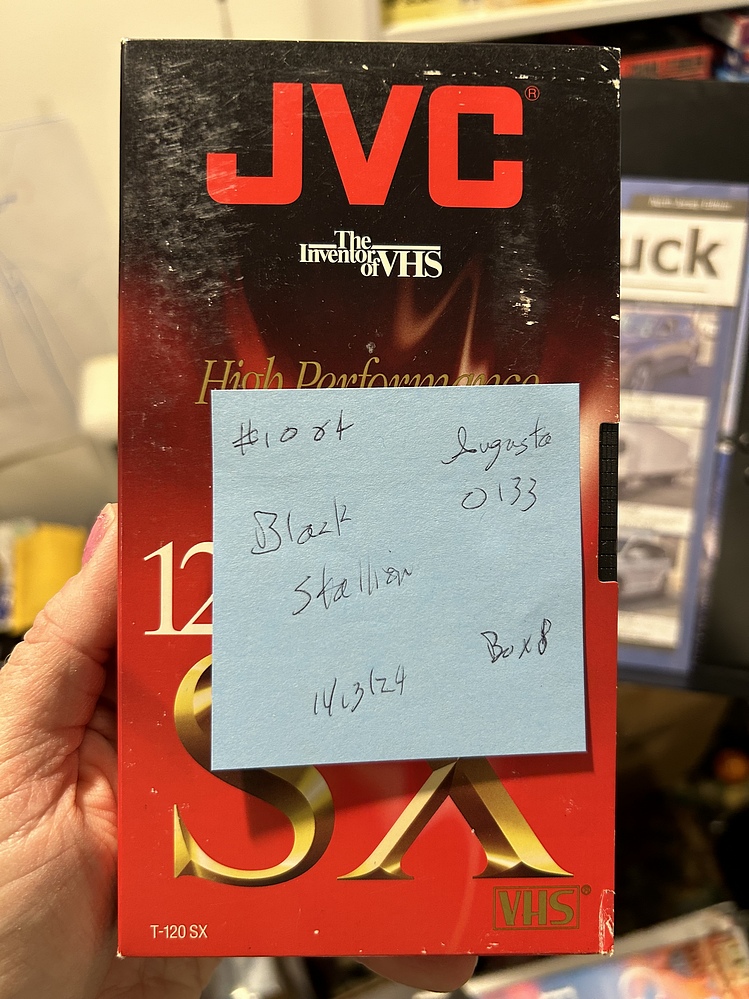 JVC®
The
Inventor
of VHS
High Performance
#1084
Augusta
0133
Black
Stallion
Box 8
11/13/24
12
SX
VHS®
T-120 SX
uck